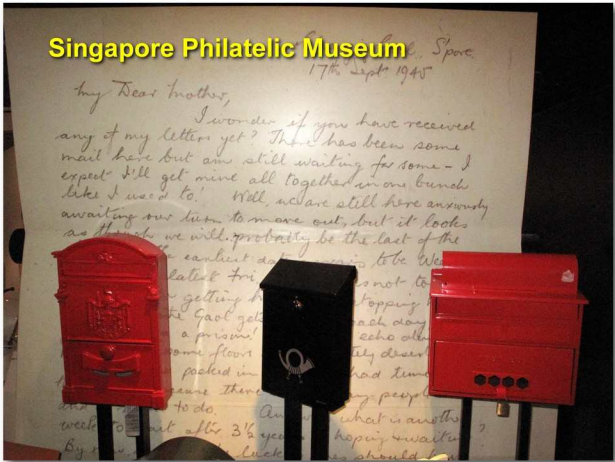 Singapore Philatelic Museum
S'pore
17th Sept 1945
My Dear Mother,
I wonder if you have received
any of my letters yet? There has been some
mail here but am still waiting for some - I
expect I'll get mine all together in one bunch
like I used to! Well, we are still here anxiously
awaiting our turn to move out, but it looks
as though we will probably be the last of the
earliest date to be Wed
latest Fri is not to
getting
the Gaol each day
a prison! echo
some floors
packed in had time
there people
to do. what is another
week after 3½ years hoping waiting?
By now, luck should